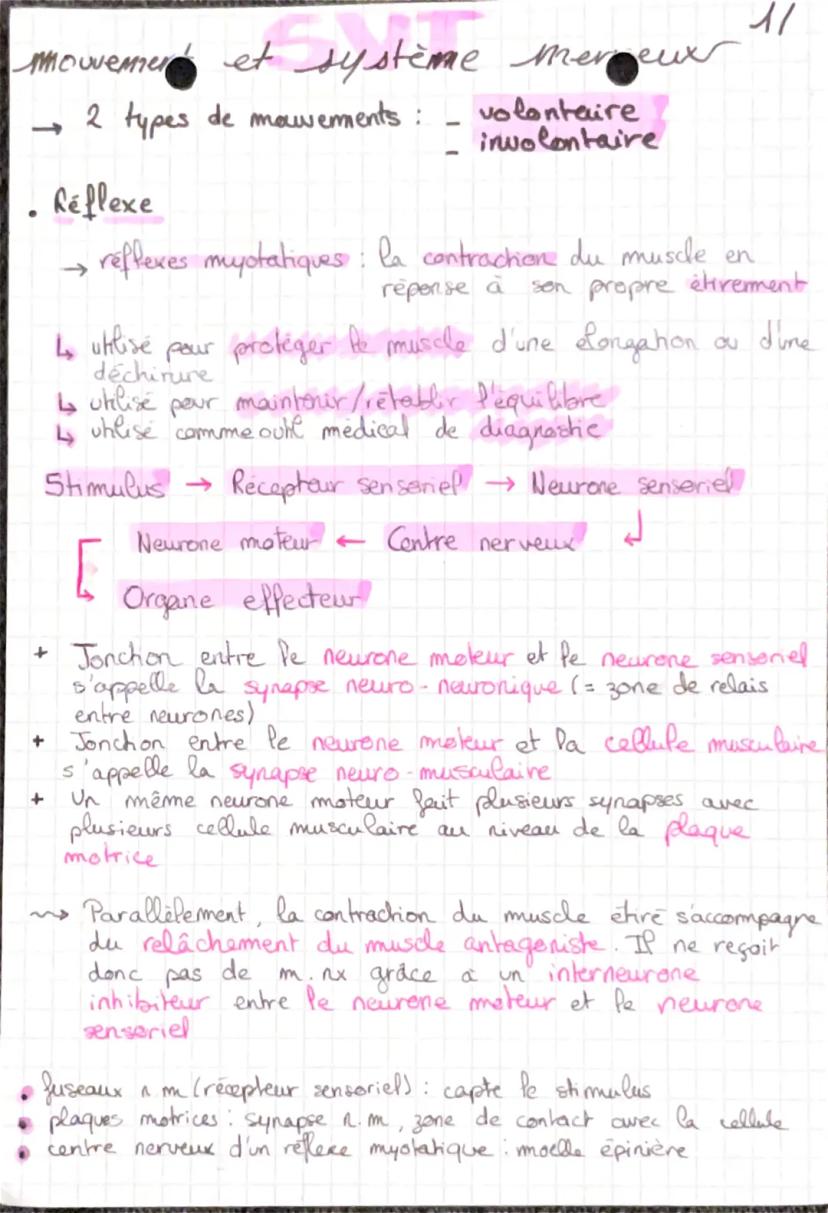 SVT
1/
mouvement et système nerveux
→ 2 types de mouvements : - volontaire
- involontaire
• Réflexe
→ réflexes myotatiques : la contraction du muscle en
réponse à son propre étirement
↳ utilisé pour protéger le muscle d'une élongation ou d'une
déchirure
↳ utilisé pour maintenir/rétablir l'équilibre
↳ utilisé comme outil médical de diagnostic
Stimulus → Récepteur sensoriel → Neurone sensoriel
Neurone moteur ← Centre nerveux
Organe effecteur
+ Jonction entre le neurone moteur et le neurone sensoriel
s'appelle la synapse neuro-neuronique (= zone de relais
entre neurones)
+ Jonction entre le neurone moteur et la cellule musculaire
s'appelle la synapse neuro-musculaire
+ Un même neurone moteur fait plusieurs synapses avec
plusieurs cellule musculaire au niveau de la plaque
motrice
⇝ Parallèlement, la contraction du muscle étiré s'accompagne
du relâchement du muscle antagoniste. Il ne reçoit
donc pas de m.nx grâce à un interneurone
inhibiteur entre le neurone moteur et le neurone
sensoriel
• fuseaux n.m (récepteur sensoriel) : capte le stimulus
• plaques motrices : synapse n.m, zone de contact avec la cellule
• centre nerveux d'un réflexe myotatique : moelle épinière